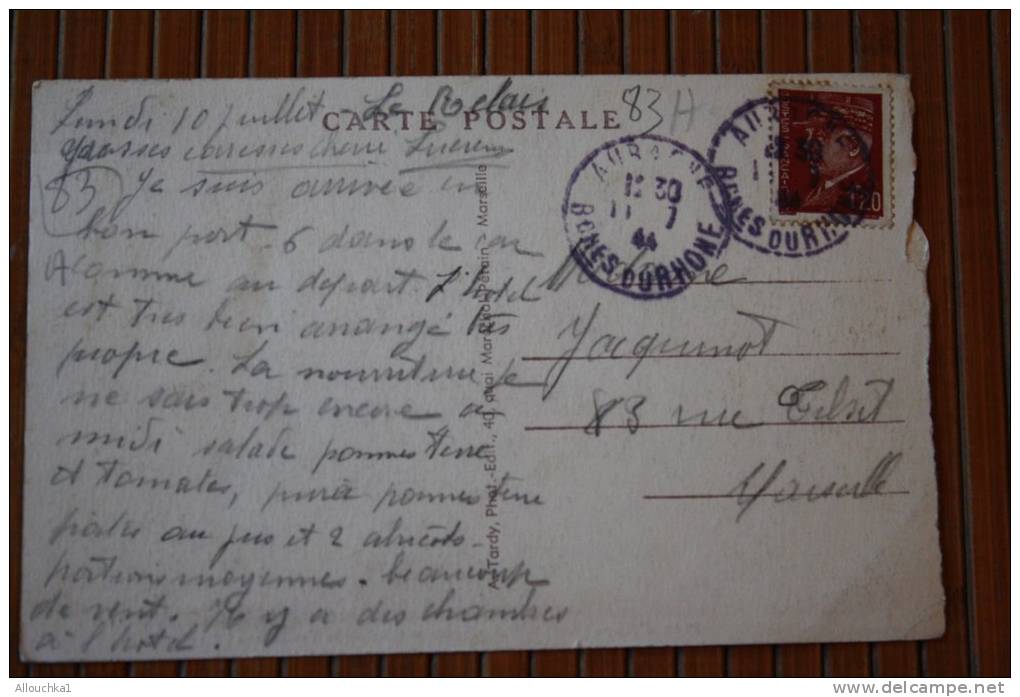 Lundi 10 juillet - Le Relais
CARTE POSTALE
83 H
83
Je suis arrivée en
bon port. 6 dans le car
comme au départ l'hotel
est très bien arrangé très
propre. La nourriture je
ne sais trop encore à
midi salade pommes terre
et tomates, purée pommes terre
pates au jus et 2 abricots.
portions moyennes. beaucoup
de vent. Il y a des chambres
à l'hotel.
A. Tardy, Phot.-Edit., 40, quai Maréchal-Pétain - Marseille
AUBAGNE
12 30
11 7
44
BCHES DU RHONE
1F20
Madame
Jaquemot
83 rue Tilsit
Marseille
Allouchka1
www.delcampe.net